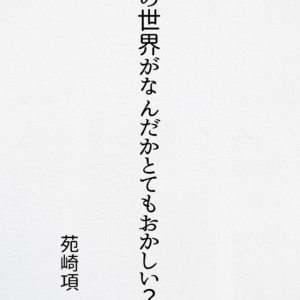 の世界がなんだかとてもおかしい？
苑崎項